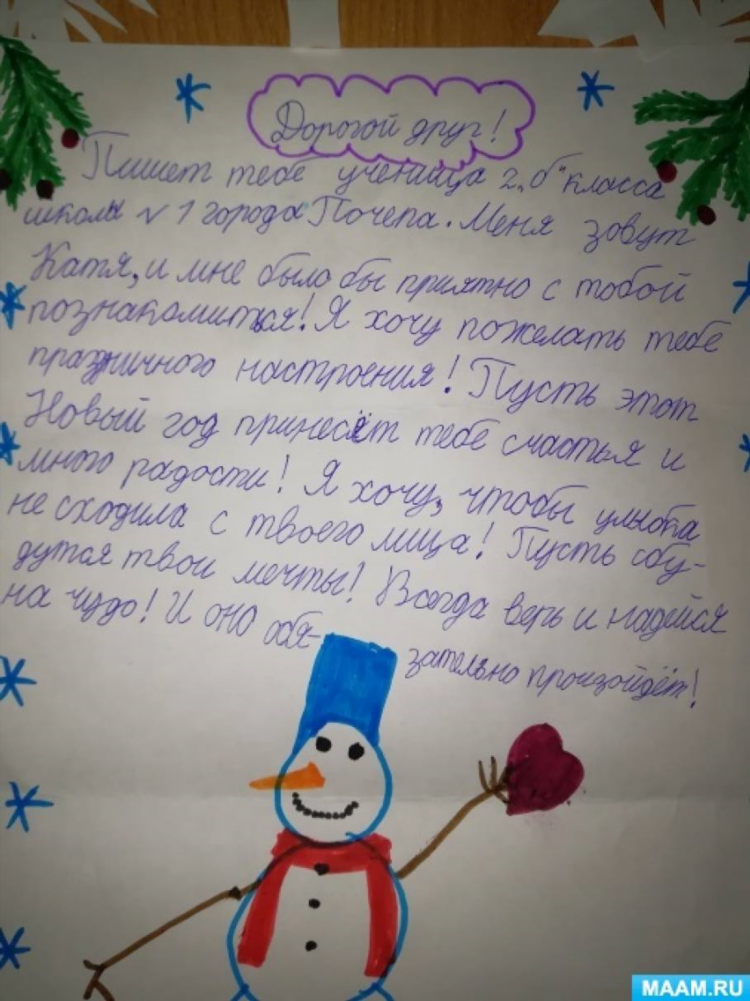 Дорогой друг!
Пишет тебе ученица 2 „б" класса
школы №1 города Почепа. Меня зовут
Катя, и мне было бы приятно с тобой
познакомиться! Я хочу пожелать тебе
праздничного настроения! Пусть этот
Новый год принесёт тебе счастья и
много радости! Я хочу, чтобы улыбка
не сходила с твоего лица! Пусть сбу-
дутся твои мечты! Всегда верь и надейся
на чудо! И оно обя-
зательно произойдёт!
MAAM.RU